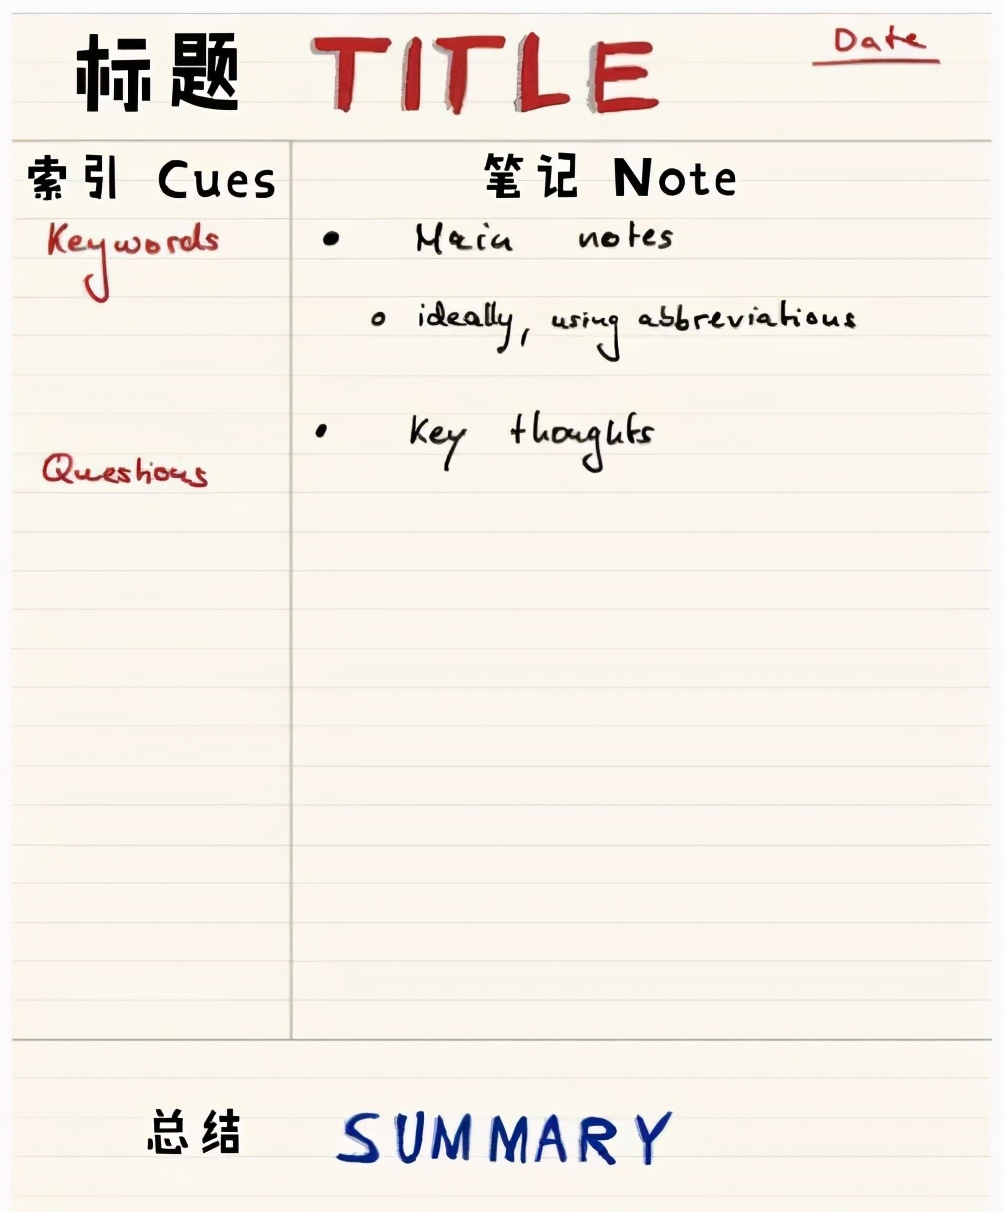 标题 TITLE Date
索引 Cues
Keywords
Questions
笔记 Note
• Main notes
○ ideally, using abbreviations
• Key thoughts
总结 SUMMARY